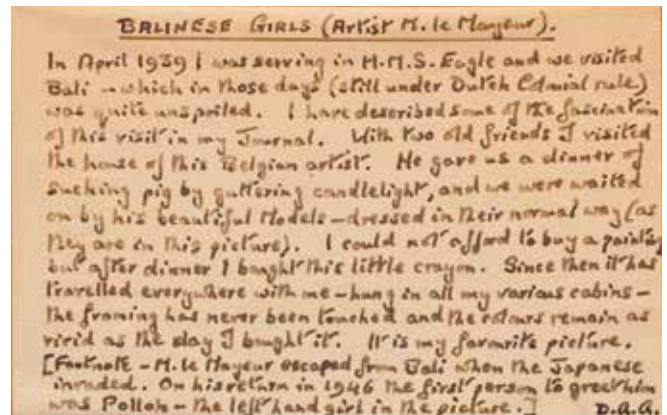 BALINESE GIRLS (Artist M. le Mayeur).
In April 1939 I was serving in H.M.S. Eagle and we visited
Bali - which in those days (still under Dutch Colonial rule)
was quite unspoiled. I have described some of the fascination
of this visit in my Journal. With two old friends I visited
the house of this Belgian artist. He gave us a dinner of
sucking pig by guttering candlelight, and we were waited
on by his beautiful Models - dressed in their normal way (as
they are in this picture). I could not afford to buy a painting
but after dinner I bought this little crayon. Since then it has
travelled everywhere with me - hung in all my various cabins -
the framing has never been touched and the colours remain as
vivid as the day I bought it. It is my favourite picture.
[Footnote - M. le Mayeur escaped from Bali when the Japanese
invaded. On his return in 1946 the first person to greet him
was Polloh - the left hand girl in the picture.] D.A.G.